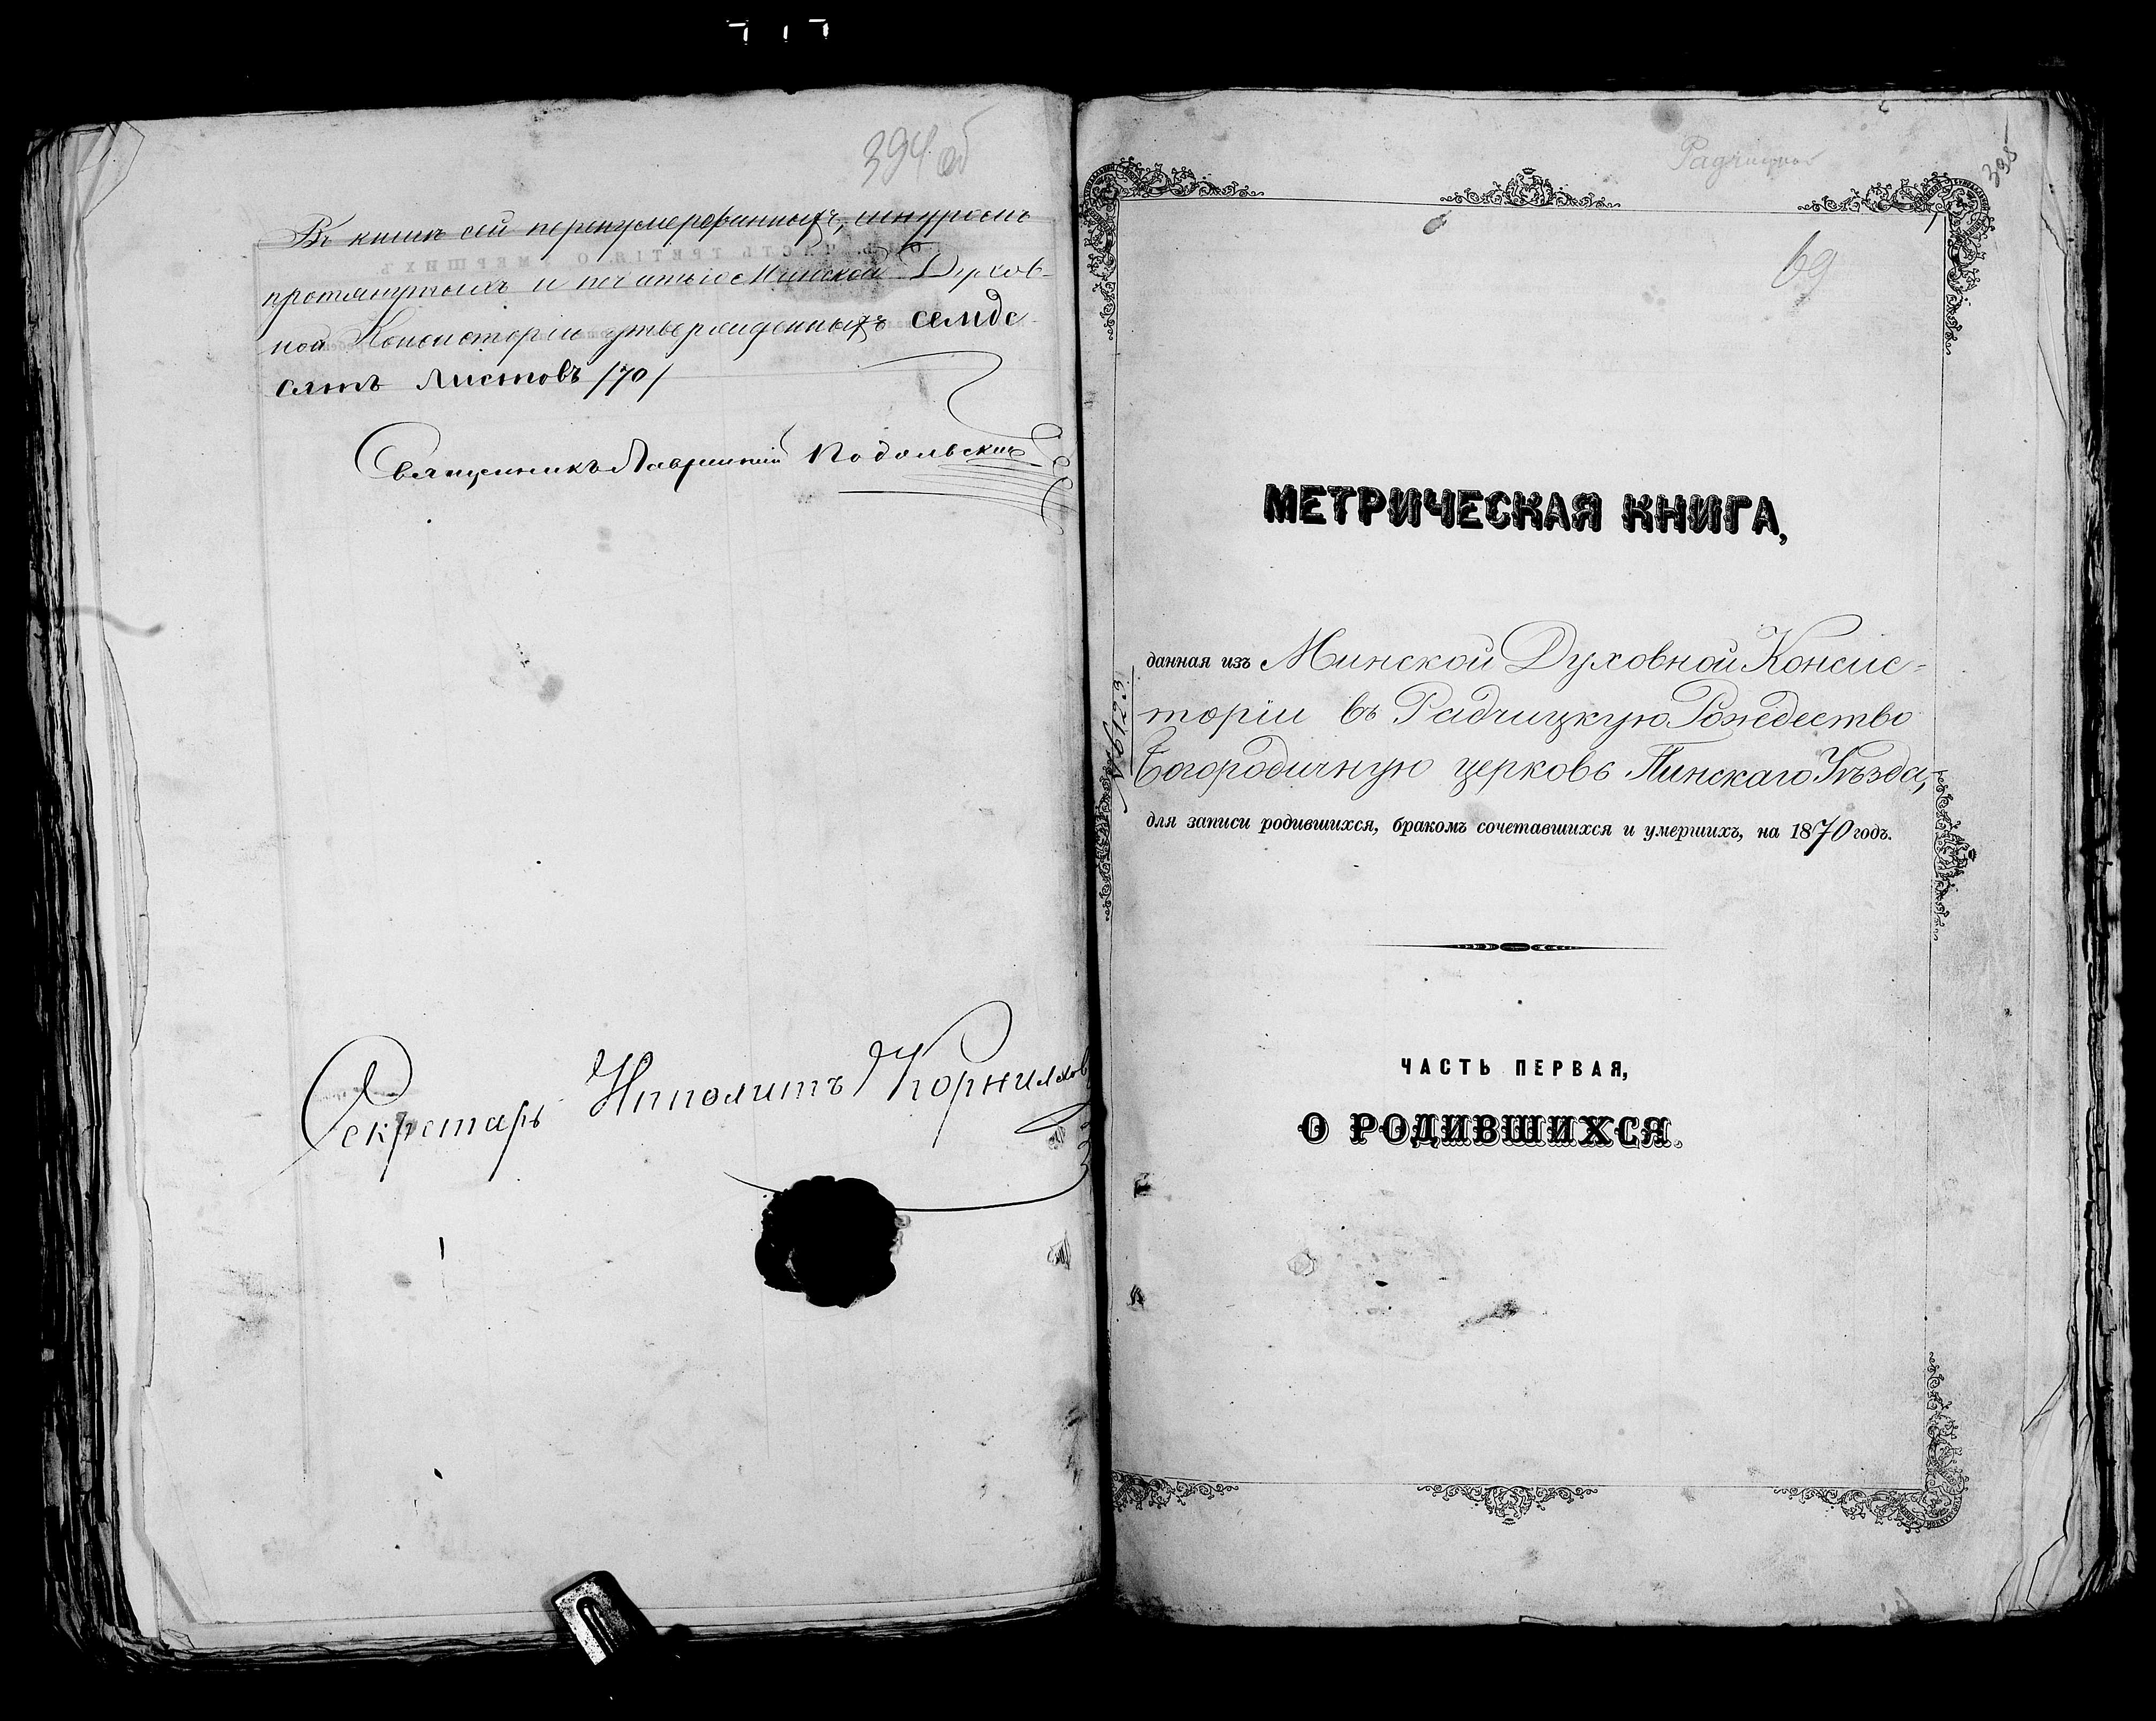 394 об
Въ книгѣ сей перенумерованныхъ, шнуромъ
протянутыхъ и печатью Минской Духов-
ной Консисторіи утвержденныхъ семьде-
сятъ листовъ /70/
Священникъ Лаврентій Подольскій
Секретарь Ипполитъ Корнилов
395
69
МЕТРИЧЕСКАЯ КНИГА,
данная изъ Минской Духовной Консис-
торіи въ Радчицкую Рождество
Богородичную церковь Пинскаго Уѣзда,
для записи родившихся, бракомъ сочетавшихся и умершихъ, на 1870 годъ.
№ 6123.
ЧАСТЬ ПЕРВАЯ,
О РОДИВШИХСЯ.